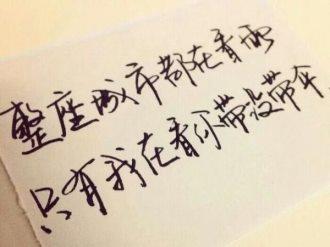 整座城市都在看雨
只有我在看你带没带伞